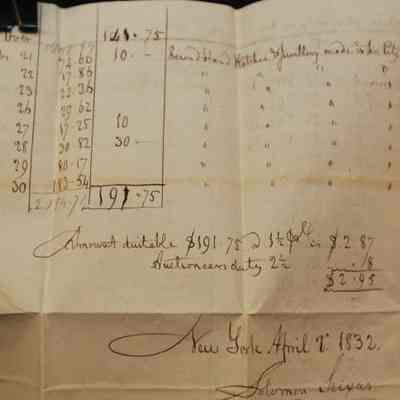 over 141.75
21 74.66 10.— Second hand Watches & Jewellery made in the City
22 17.86 " " " "
23 22.36 " " " "
26 29.62 " " " "
27 17.25 10 " " " "
28 30.82 30— " " " "
29 80.17 " " " "
30 183.54 " " " "
191.75
Amount dutiable $191.75 @ 1½ is $2.87
Auctioneers duty 2½ .8
$2.95
New York April 1832.
Solomon Seixas